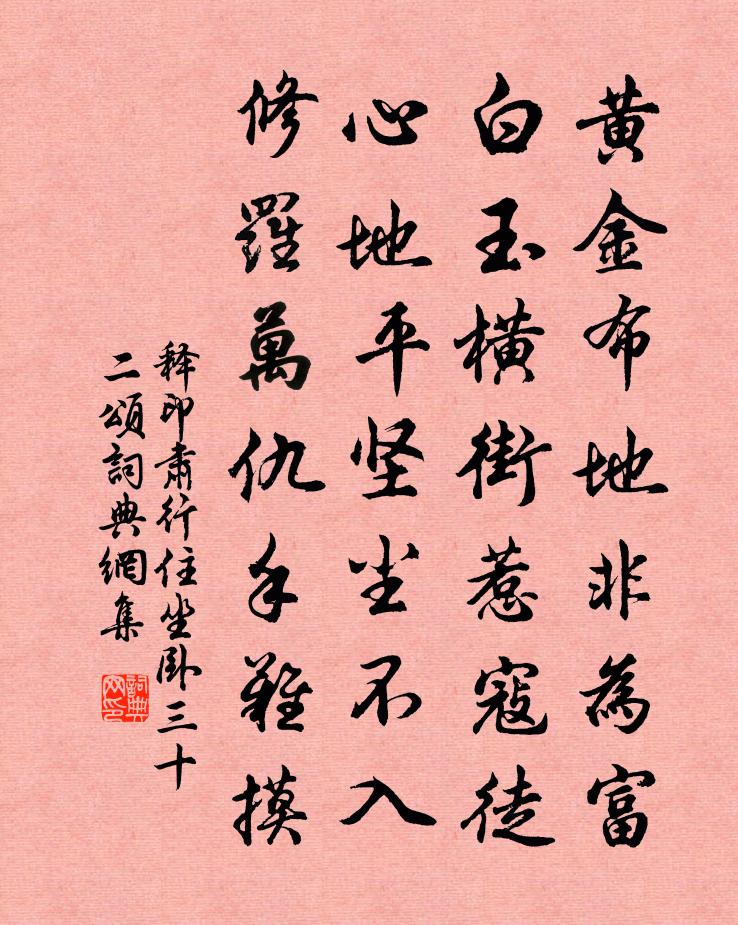 黄金布地非為富
白玉橫街惹寇徒
心地平坚坐不入
修羅萬仇手難摸
释印肃行住坐卧三十
二頌詞典網集
詞典网印